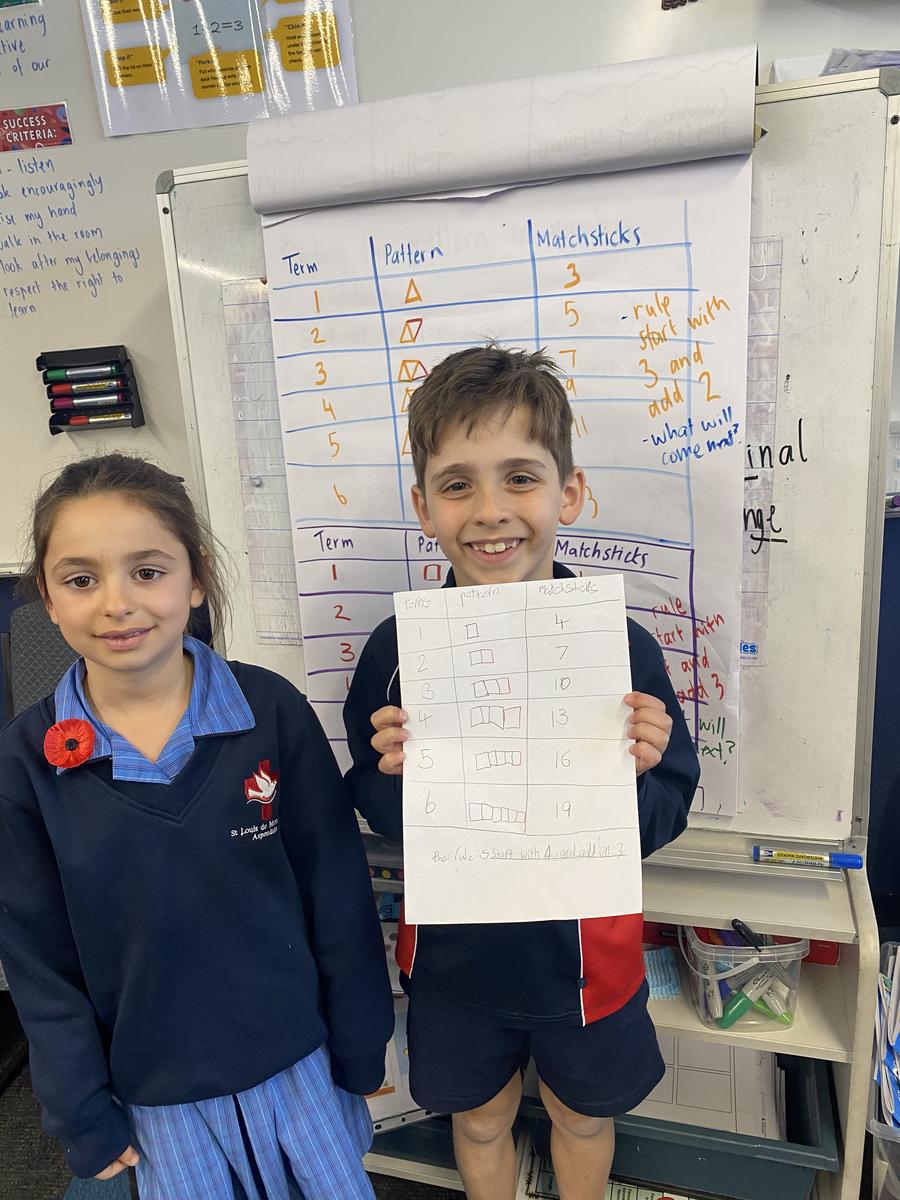 earning
ctive
of our
1+2=3
SUCCESS
CRITERIA:
- listen
encouragingly
my hand
walk in the room
look after my belongings
respect the right to
learn
Term Pattern Matchsticks
1 3
2 5
3 7
4 9
5 11
6
- rule
start with
3 and
add 2
- what will
come next?
inal
nge
Term Pat Matchsticks
1
2
3
rule
start with
and
add 3
will
ext?
terms pattern matchsticks
1 4
2 7
3 10
4 13
5 16
6 19
the rule is start with 4 and add on 3
St Louis de Mon
Aspendale